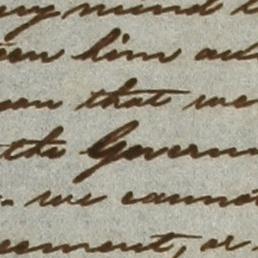 my mind
him
that we
the Govern
we cannot
eement, or